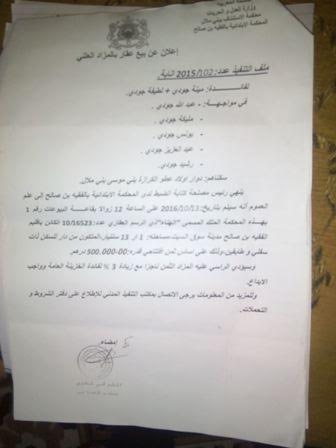 وزارة العدل و الحريات
محكمة الاستئناف بني ملال
المحكمة الابتدائية بالفقيه بن صالح
إعلان عن بيع عقار بالمزاد العلني
ملف التنفيذ عدد: 2015/102 انابة.
لفائدة: مينة جودي + لطيفة جودي.
في مواجهة: - عبد الله جودي.
- مليكة جودي.
- يونس جودي
- عبد العزيز جودي.
- رشيد جودي.
سكناهم: دوار اولاد عطو القرازة بني موسى بني ملال.
ينهي رئيس مصلحة كتابة الضبط لدى المحكمة الابتدائية بالفقيه بن صالح إلى علم
العموم أنه سيتم بتاريخ: 2016/10/13 على الساعة 12 زوالا بقاعة البيوعات رقم 1
بهذه المحكمة الملك المسمى "الهناء" ذي الرسم العقاري عدد: 10/16523 الكائن باقليم
الفقيه بن صالح مدينة سوق السبت مساحته: 1 ار 13 سنتيار المتكون من دار للسكن ذات
سفلي و طابقين وذلك على اساس ثمن افتتاحي قدره: 500.000-00 درهم.
وسيؤدي الراسي عليه المزاد الثمن ناجزا مع زيادة 3 % لفائدة الخزينة العامة وواجب
الايداع.
وللمزيد من المعلومات يرجى الاتصال بمكتب التنفيذ المدني للإطلاع على دفتر الشروط و
التحملات.
إمضاء